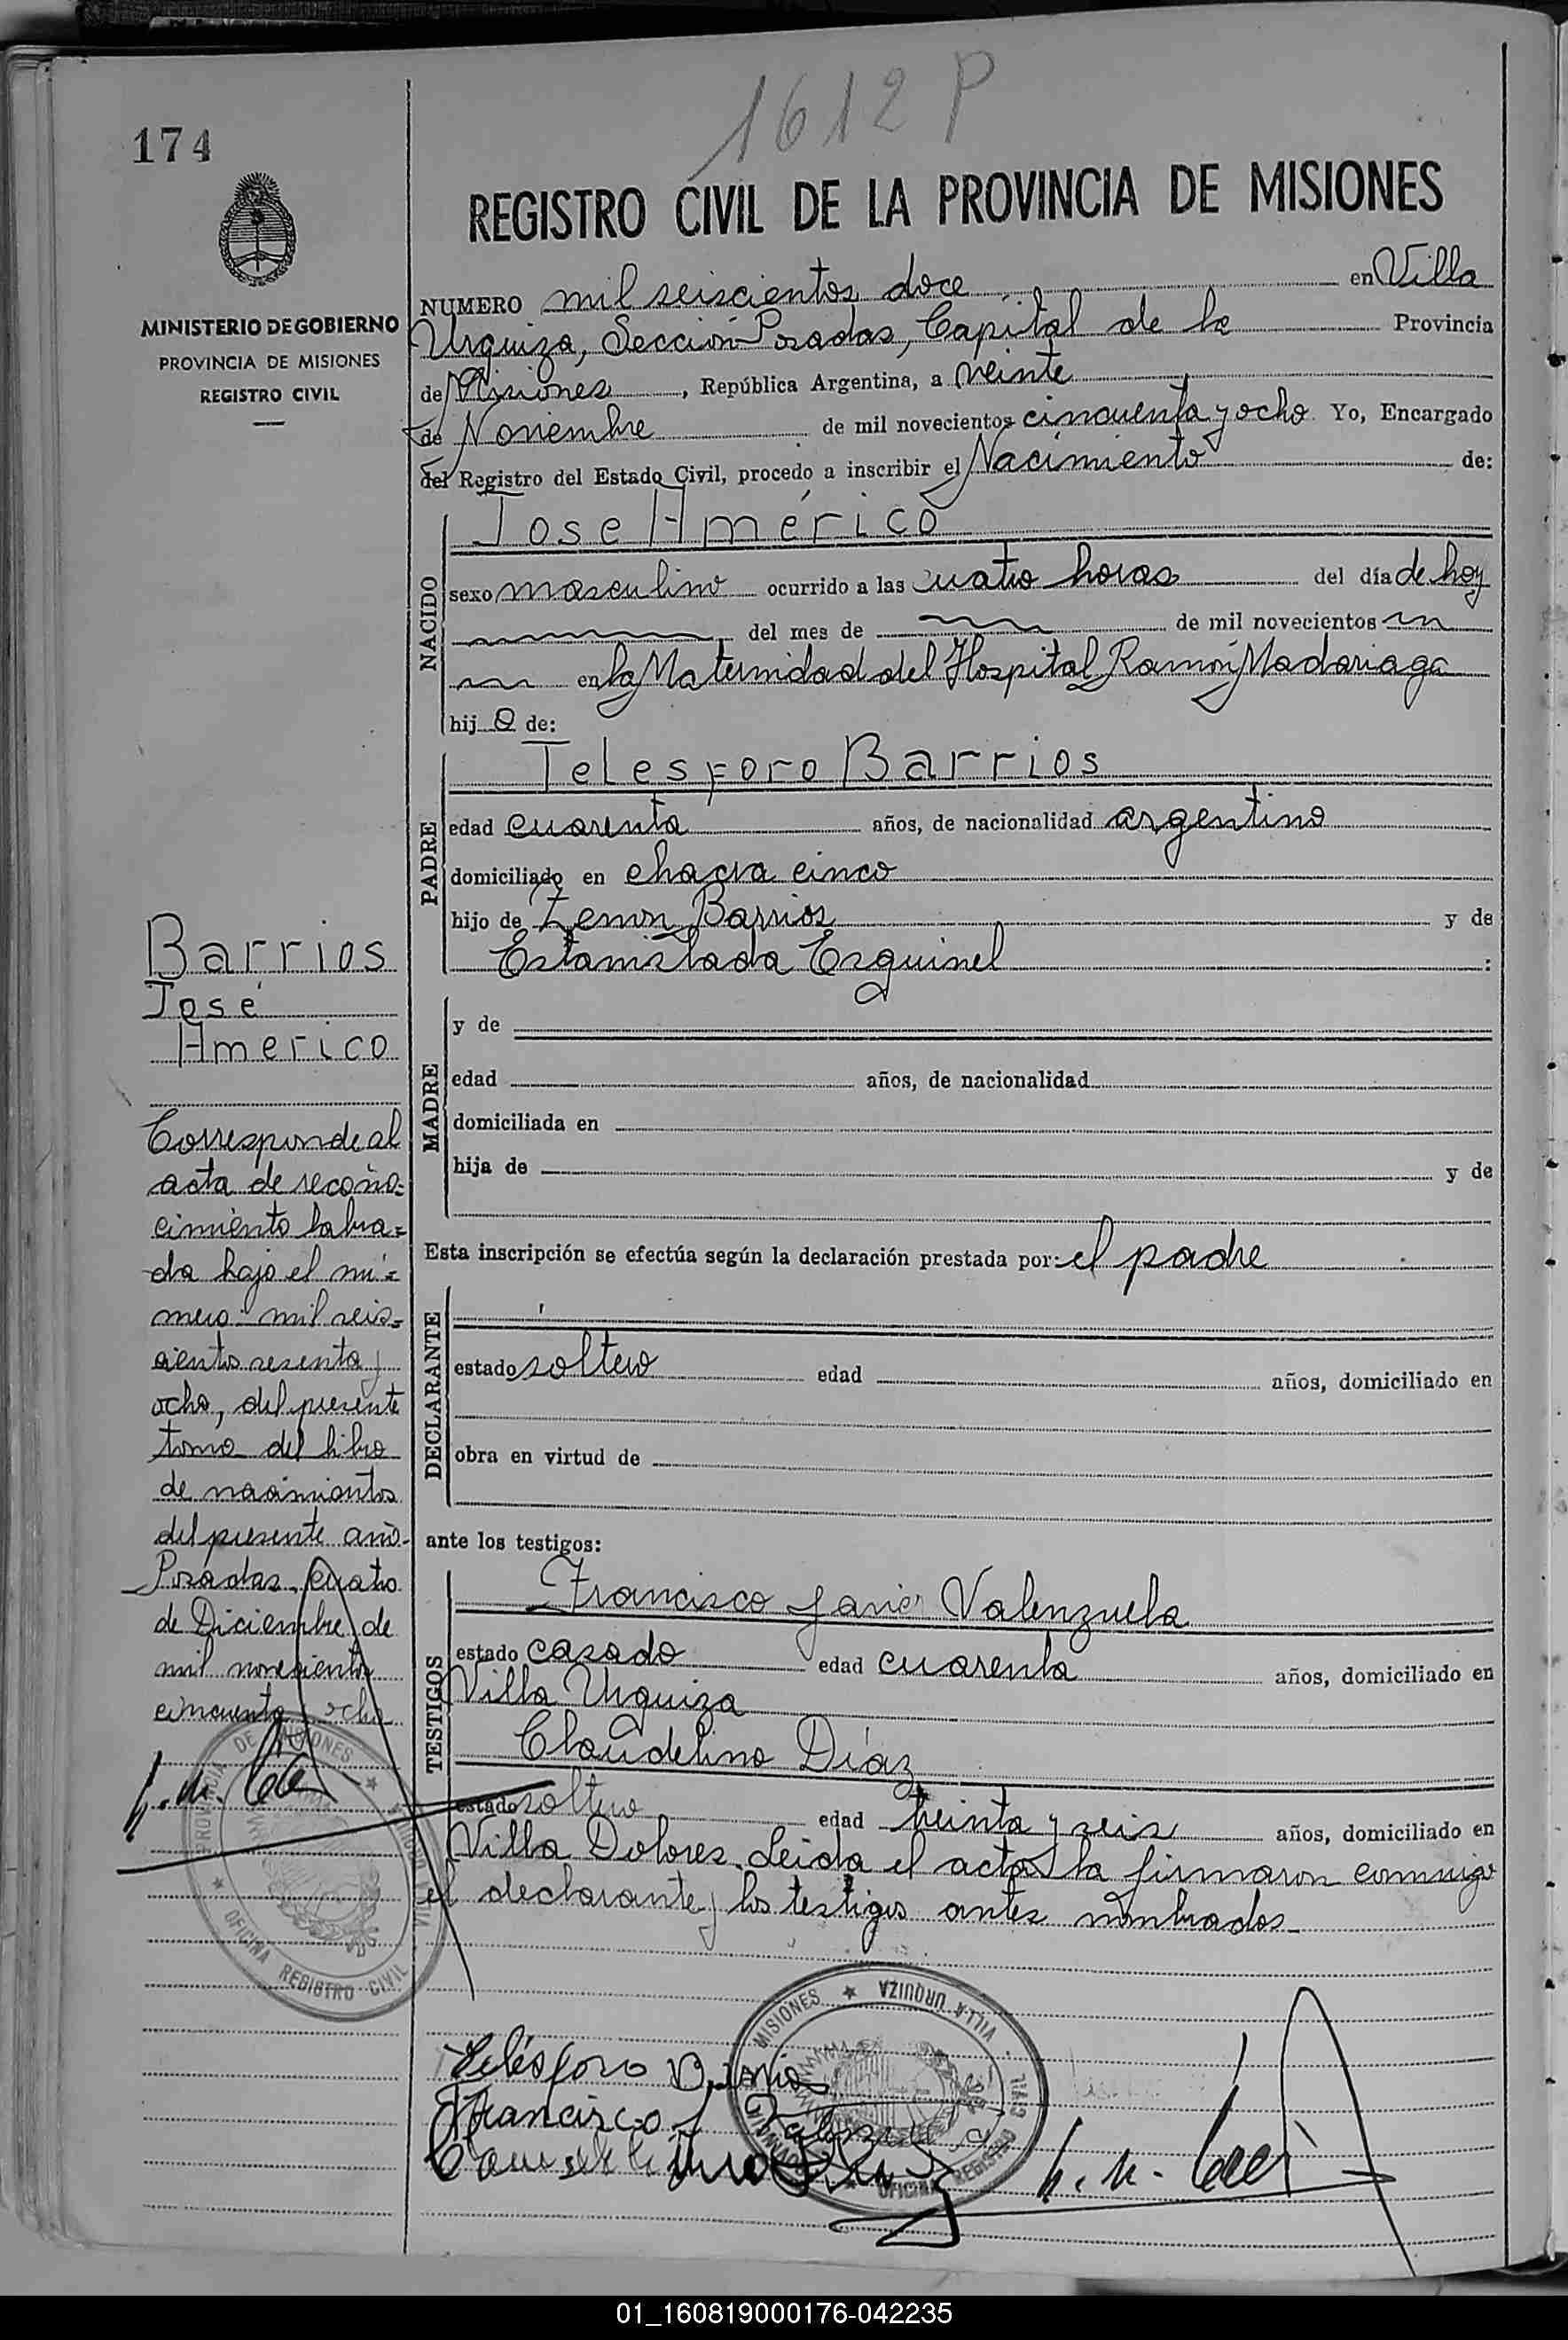 1612 P
174
REGISTRO CIVIL DE LA PROVINCIA DE MISIONES
MINISTERIO DE GOBIERNO
PROVINCIA DE MISIONES
REGISTRO CIVIL
NUMERO mil seiscientos doce en Villa
Urquiza, Sección Posadas, Capital de la Provincia
de Misiones, República Argentina, a veinte
de Noviembre de mil novecientos cincuenta y ocho. Yo, Encargado
del Registro del Estado Civil, procedo a inscribir el Nacimiento de:
NACIDO
Jose Américo
sexo masculino ocurrido a las cuatro horas del día de hoy
del mes de de mil novecientos
en la Maternidad del Hospital Ramón Madariaga
hijo de:
PADRE
Telesforo Barrios
edad cuarenta años, de nacionalidad argentino
domiciliado en chacra cinco
hijo de Zenon Barrios y de
Estanislada Esquinel :
MADRE
y de
edad años, de nacionalidad
domiciliada en
hija de y de
Esta inscripción se efectúa según la declaración prestada por: el padre
DECLARANTE
estado soltero edad años, domiciliado en
obra en virtud de
ante los testigos:
TESTIGOS
Francisco Javier Valenzuela
estado casado edad cuarenta años, domiciliado en
Villa Urquiza
Claudelino Díaz
estado soltero edad treinta y seis años, domiciliado en
Villa Dolores. Leida el acta la firmaron conmigo
el declarante y los testigos antes nombrados
Barrios
José
Americo
Corresponde al
acta de recono=
cimiento labra=
da bajo el nú=
mero mil seis=
cientos sesenta y
ocho, del presente
tomo del libro
de nacimientos
del presente año.
Posadas, cuatro
de Diciembre de
mil novecientos
cincuenta y ocho
PROVINCIA DE MISIONES
OFICINA REGISTRO CIVIL
Telésforo Barrios
Francisco J. Valenzuela
Claudelino Diaz
MISIONES ★ VILLA URQUIZA
OFICINA REGISTRO CIVIL
01_160819000176-042235